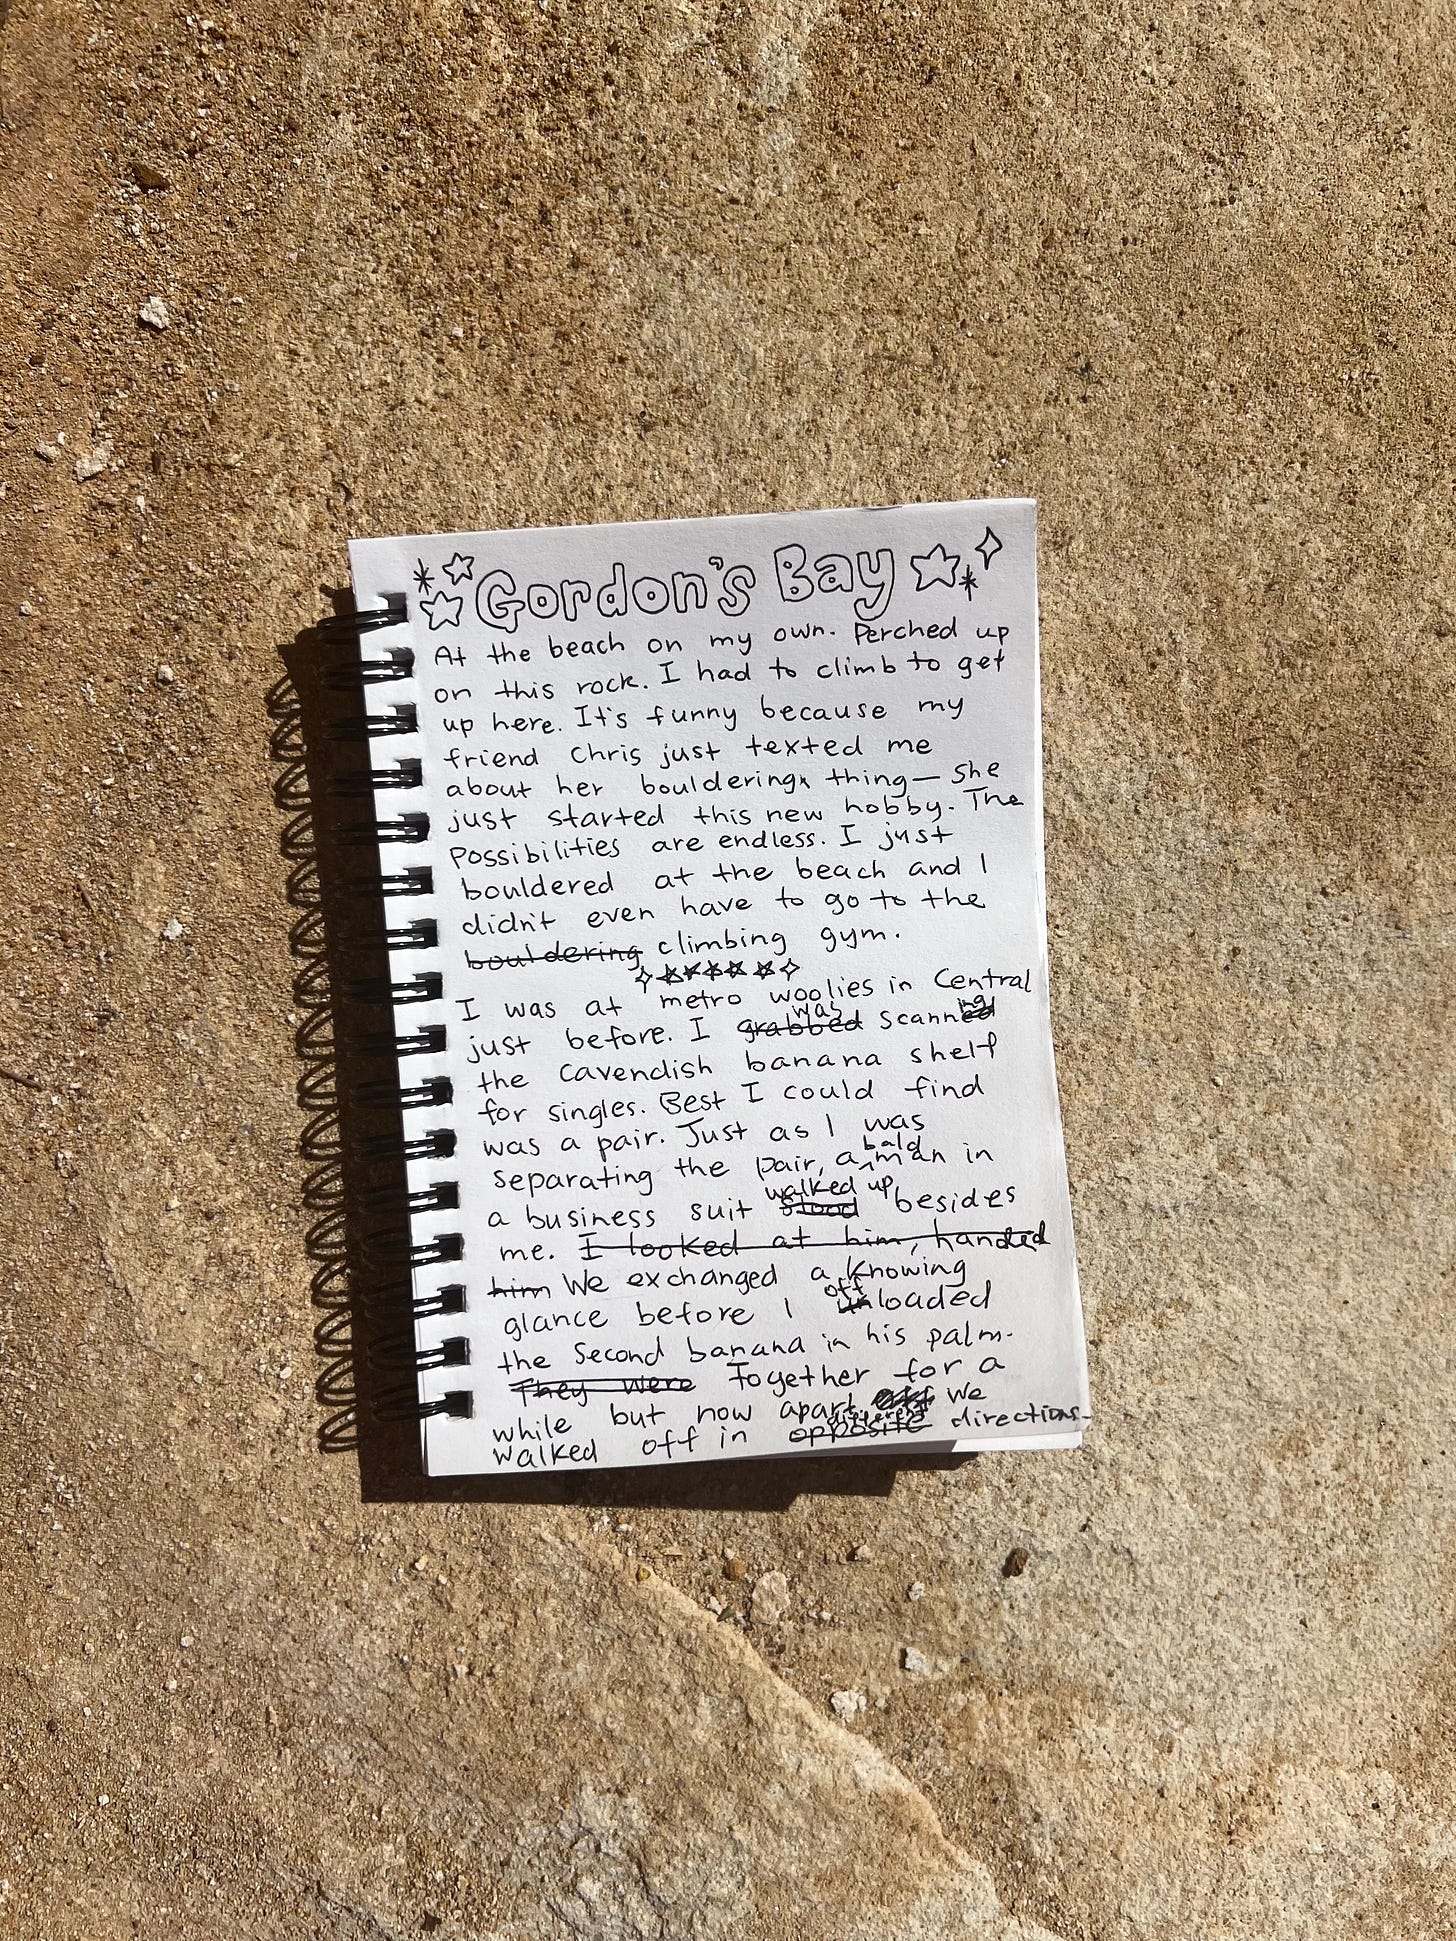 Gordon's Bay
At the beach on my own. Perched up
on this rock. I had to climb to get
up here. It's funny because my
friend Chris just texted me
about her bouldering thing— She
just started this new hobby. The
Possibilities are endless. I just
bouldered at the beach and I
didn't even have to go to the
bouldering climbing gym.
I was at metro woolies in Central
just before. I grabbed was scanning
the cavendish banana shelf
for singles. Best I could find
was a pair. Just as I was
separating the pair, a bald man in
a business suit stood walked up besides
me. I looked at him, handed
him We exchanged a knowing
glance before I offloaded
the second banana in his palm.
They were Together for a
while but now apart. We
walked off in opposite different directions.